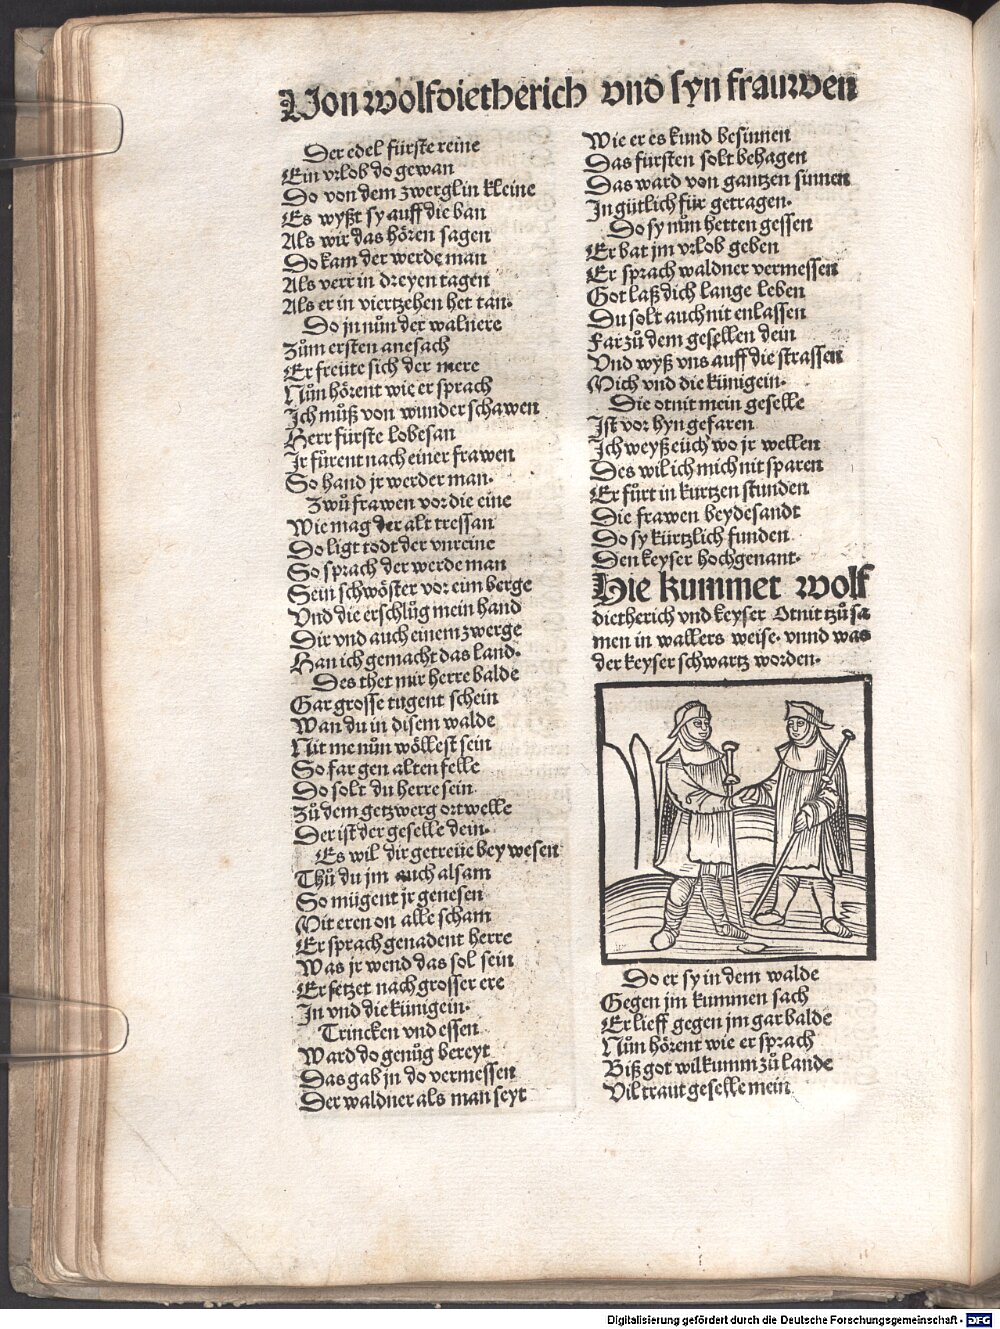 Von wolfdietherich vnd syn frauwen
Der edel fürste reine
Ein vrlob do gewan
Do von dem zwerglin kleine
Es wyßt sy auff die ban
Als wir das hören sagen
Do kam der werde man
Als verr in dreyen tagen
Als er in viertzehen het tan.
Do jn nůn der walnere
Zům ersten anesach
Er freüte sich der mere
Nůn hörent wie er sprach
Ich můß von wunder schawen
Herr fürste lobesan
Ir fůrent nach einer frawen
So hand jr werder man.
Zwů frawen vor die eine
Wie mag der alt tressan
Do ligt todt der vnreine
So sprach der werde man
Sein schwöster vor eim berge
Vnd die erschlůg mein hand
Dir vnd auch einem zwerge
Han ich gemacht das land.
Des thet mir herre balde
Gar grosse tugent schein
Wan du in disem walde
Nit me nůn wöllest sein
So far gen alten felle
Do solt du herre sein.
Zů dem getzwerg ortwelle
Der ist der geselle dein.
Es wil dir getreüe bey wesen
Thů du jm auch alsam
So mügent jr genesen
Mit eren on alle scham
Er sprach genadent herre
Was jr wend das sol sein
Er setzet nach grosser ere
In vnd die künigein.
Trincken vnd essen
Ward do genůg bereyt
Das gab jn do vermessen
Der waldner als man seyt
Wie er es kund besinnen
Das fürsten solt behagen
Das ward von gantzen sinnen
In gütlich für getragen.
Do sy nům hetten gessen
Er bat jm vrlob geben
Er sprach waldner vermessen
Got laß dich lange leben
Du solt auch nit enlassen
Far zů dem gesellen dein
Vnd wyß vns auff die strassen
Mich vnd die künigein.
Die otnit mein geselle
Ist vor hyn gefaren
Ich weyß eüch wo jr wellen
Des wil ich mich nit sparen
Er fůrt in kurtzen stunden
Die frawen beydesandt
Do sy kürtzlich funden
Den keyser hochgenant.
Hie kummet wolf
dietherich vnd keyser Otnit tzů sa
men in wallers weise. vnnd was
der keyser schwartz worden.
Do er sy in dem walde
Gegen jm kummen sach
Er lieff gegen jm gar balde
Nůn hörent wie er sprach
Biß got wilkumm zů lande
Vil traut geselle mein
Digitalisierung gefördert durch die Deutsche Forschungsgemeinschaft - DFG